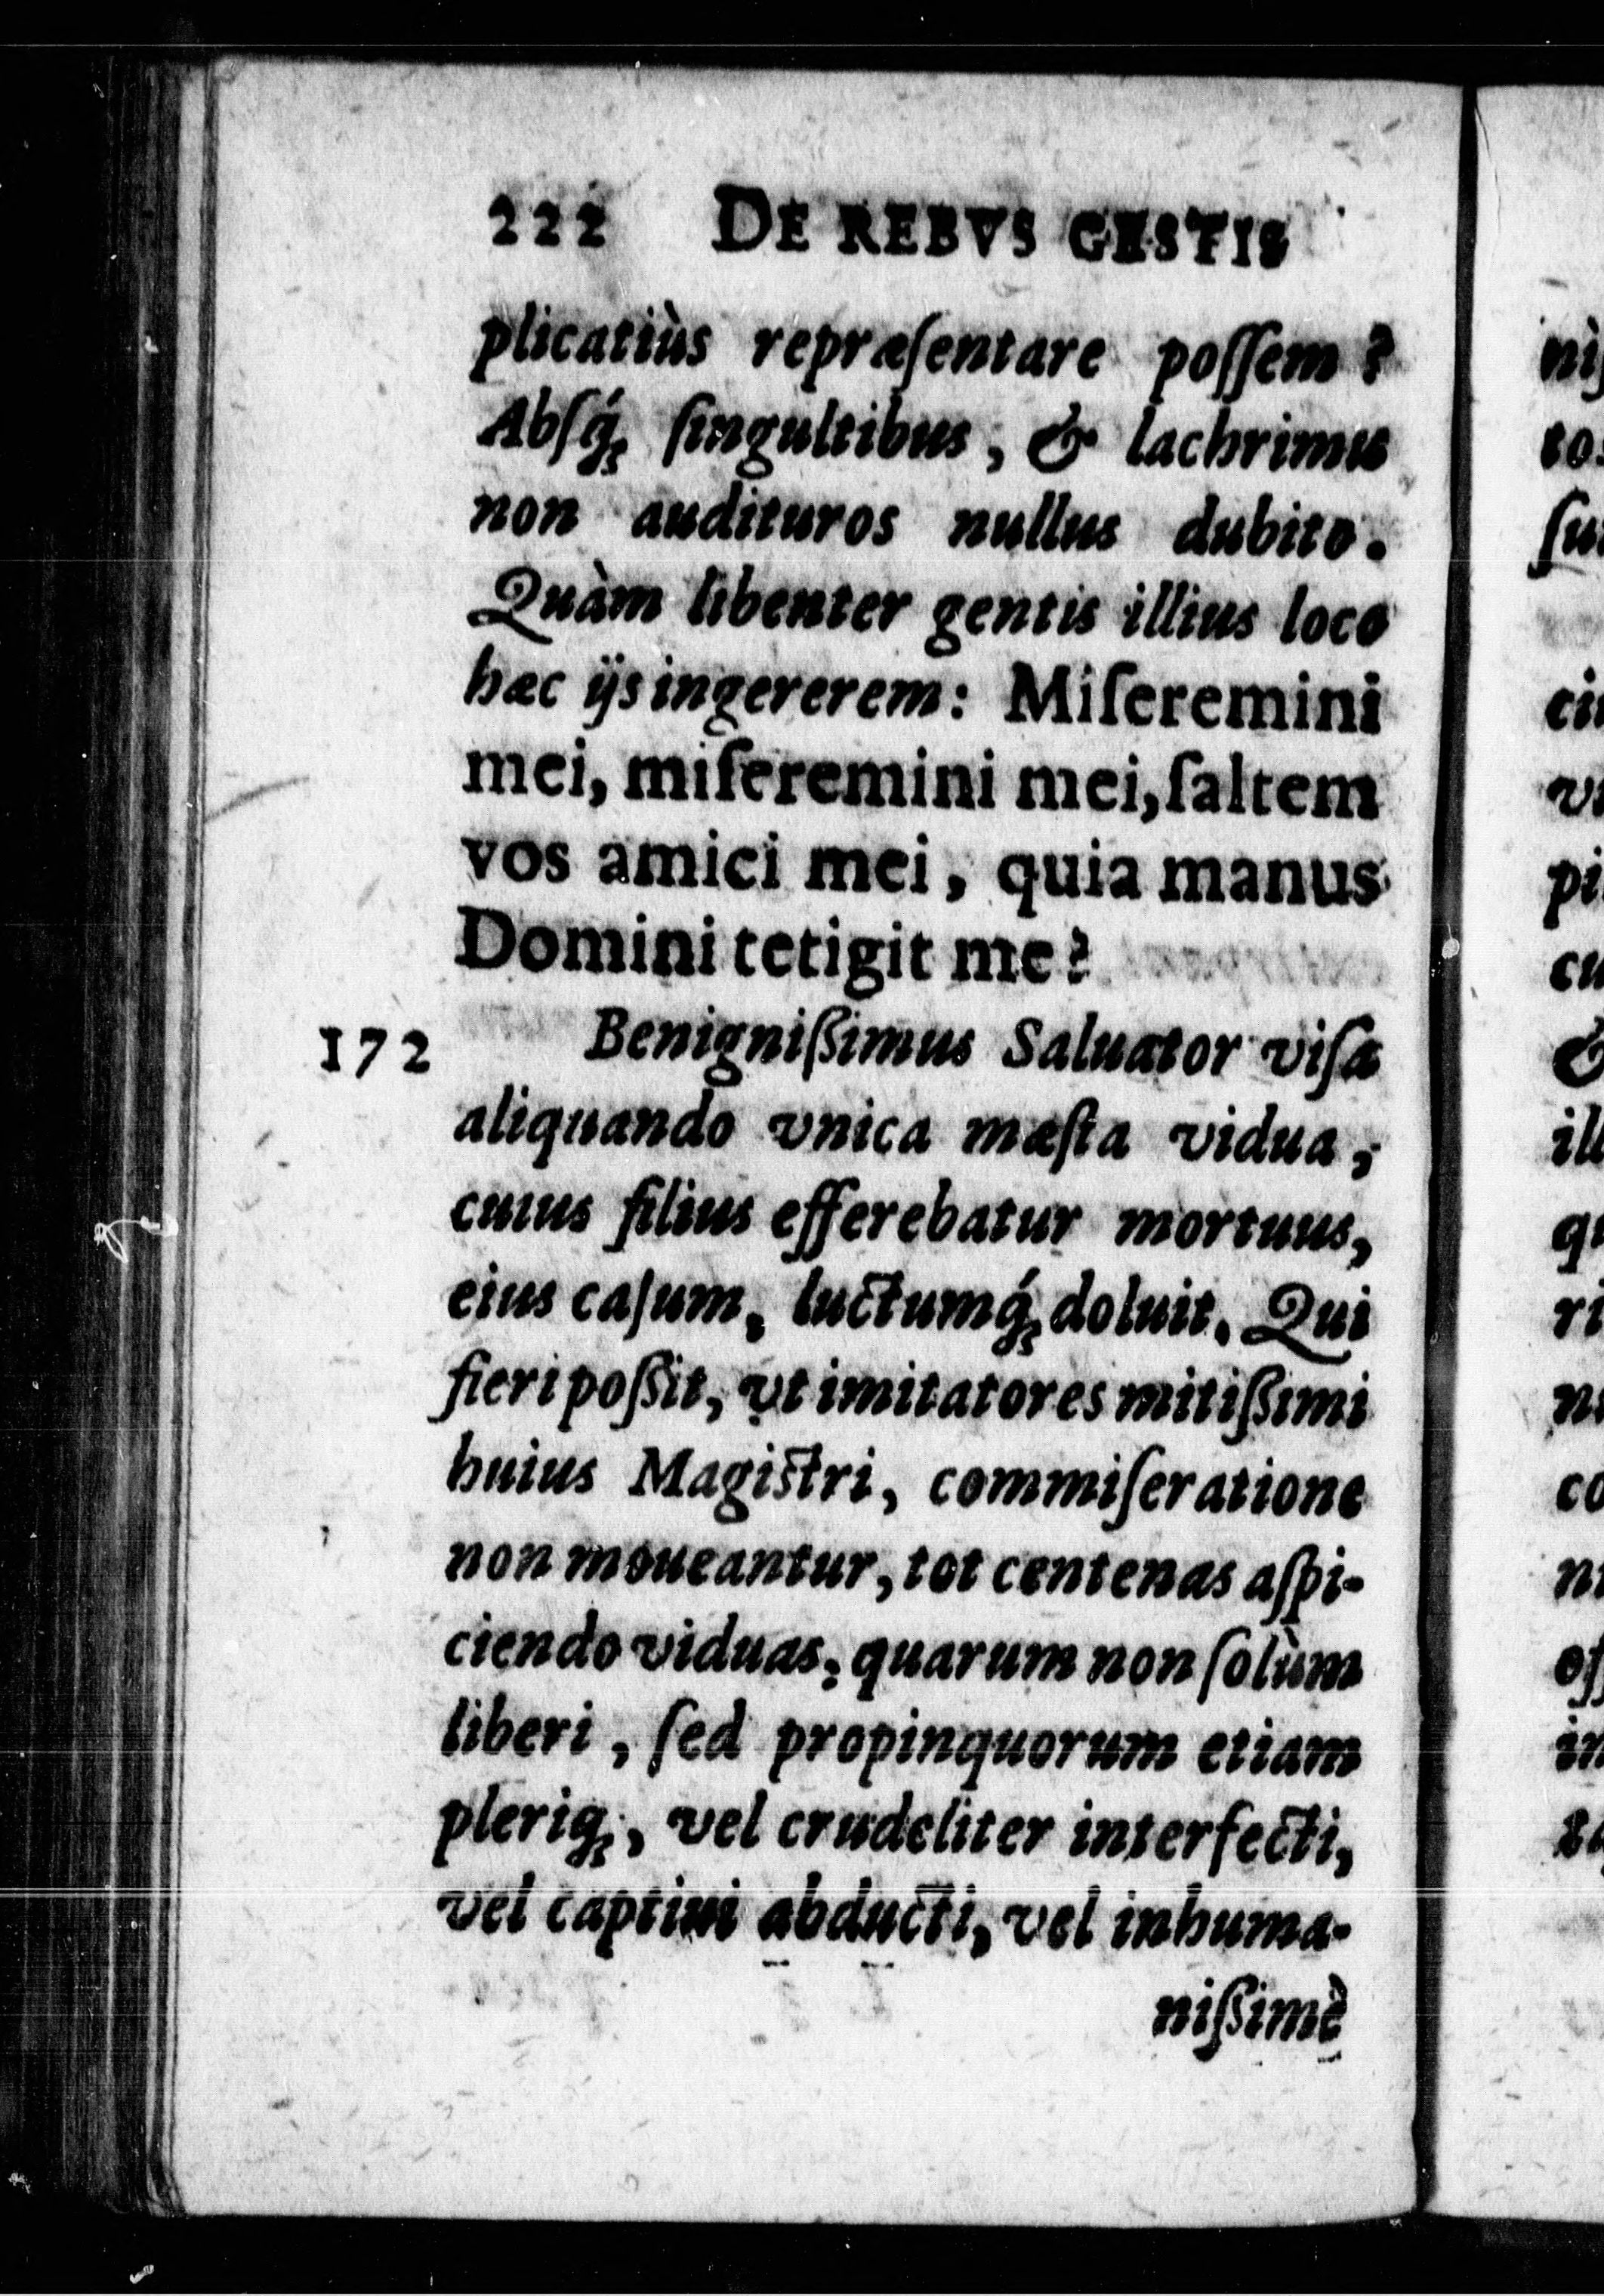 222 DE REBVS GESTIS
plicatiùs repræſentare poſſem ?
Abſq́; ſingultibus, & lachrimis
non audituros nullus dubito.
Quàm libenter gentis illius loco
hæc ijs ingererem: Miſeremini
mei, miſeremini mei, ſaltem
vos amici mei, quia manus
Domini tetigit me?
172 Benigniſſimus Saluator viſa
aliquando vnica mæſta vidua,
cuius filius efferebatur mortuus,
eius caſum, luctumq́; doluit. Qui
fieri poſſit, vt imitatores mitiſſimi
huius Magiſtri, commiſeratione
non moueantur, tot centenas aſpi-
ciendo viduas, quarum non ſolùm
liberi, ſed propinquorum etiam
pleriq;, vel crudeliter interfecti,
vel captiui abducti, vel inhuma-
niſſimè
ni
to
ſu
ci
vi
pi
cu
&
ill
qu
ri
ni
co
ni
oſ
in